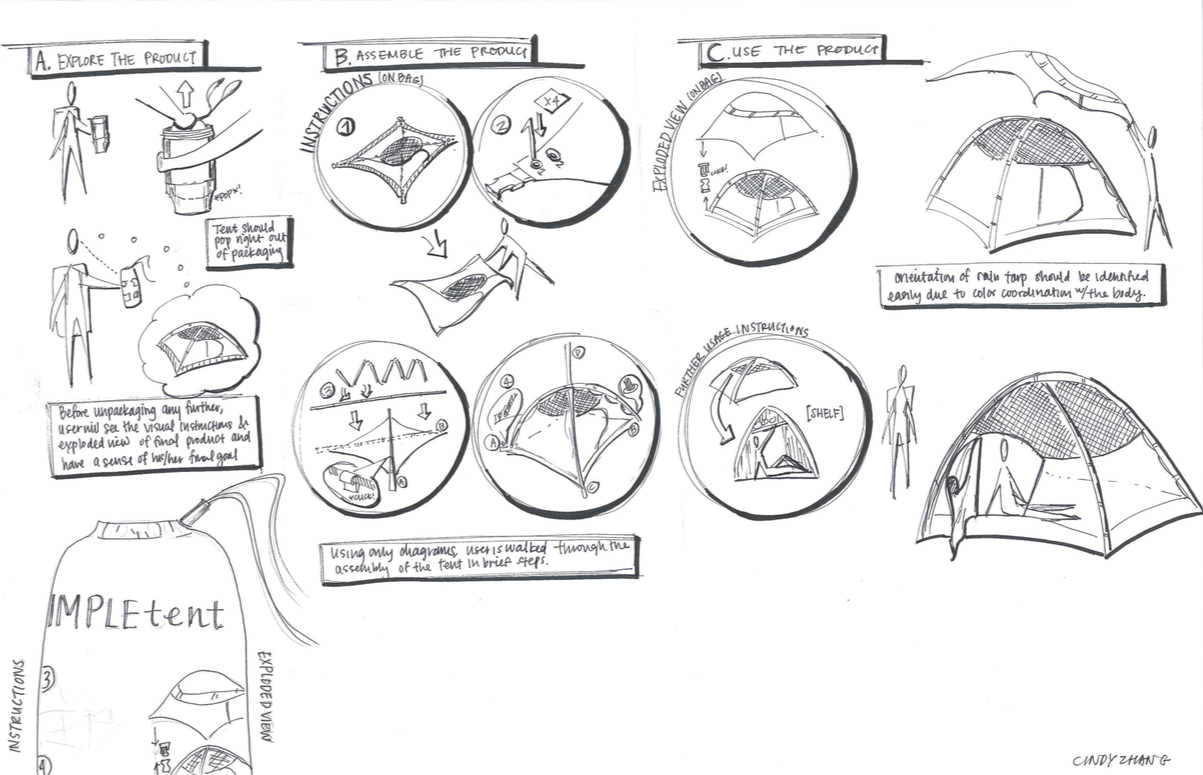 A. EXPLORE THE PRODUCT
*POP*!
Tent should
pop right out
of packaging
Before unpackaging any further,
user will see the visual instructions &
exploded view of final product and
have a sense of his/her final goal
IMPLEtent
INSTRUCTIONS
EXPLODED VIEW
3
4
B. ASSEMBLE THE PRODUCT
INSTRUCTIONS (ON BAG)
1
2
x4
3
B
A
*CLICK!
4
D
A
B
C
Using only diagrams, user is walked through the
assembly of the tent in brief steps.
C. USE THE PRODUCT
EXPLODED VIEW (ON BAG)
Orientation of rain tarp should be identified
easily due to color coordination w/the body.
FURTHER USAGE INSTRUCTIONS
[SHELF]
CINDY ZHANG